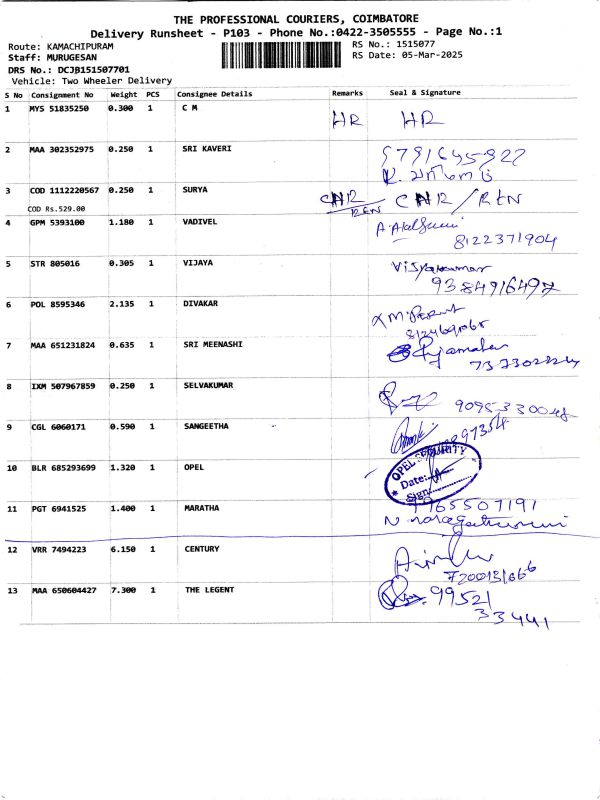 THE PROFESSIONAL COURIERS, COIMBATORE
Delivery Runsheet - P103 - Phone No.:0422-3505555 - Page No.:1
Route: KAMACHIPURAM RS No.: 1515077
Staff: MURUGESAN RS Date: 05-Mar-2025
DRS No.: DCJB151507701
Vehicle: Two Wheeler Delivery
S No Consignment No Weight PCS Consignee Details Remarks Seal & Signature
1 MYS 51835250 0.300 1 C M HR HR
2 MAA 302352975 0.250 1 SRI KAVERI
3 COD 1112220567 0.250 1 SURYA CNR/REN CNR/REN
COD Rs.529.00
4 GPM 5393100 1.180 1 VADIVEL
8122371904
5 STR 805016 0.305 1 VIJAYA Vijayakumar
9384916497
6 POL 8595346 2.135 1 DIVAKAR
7 MAA 651231824 0.635 1 SRI MEENASHI
8 IXM 507967859 0.250 1 SELVAKUMAR
9 CGL 6060171 0.590 1 SANGEETHA
10 BLR 685293699 1.320 1 OPEL OPEL SECURITY
Date:
Sign
11 PGT 6941525 1.400 1 MARATHA
12 VRR 7494223 6.150 1 CENTURY
13 MAA 650604427 7.300 1 THE LEGENT 99521
33441